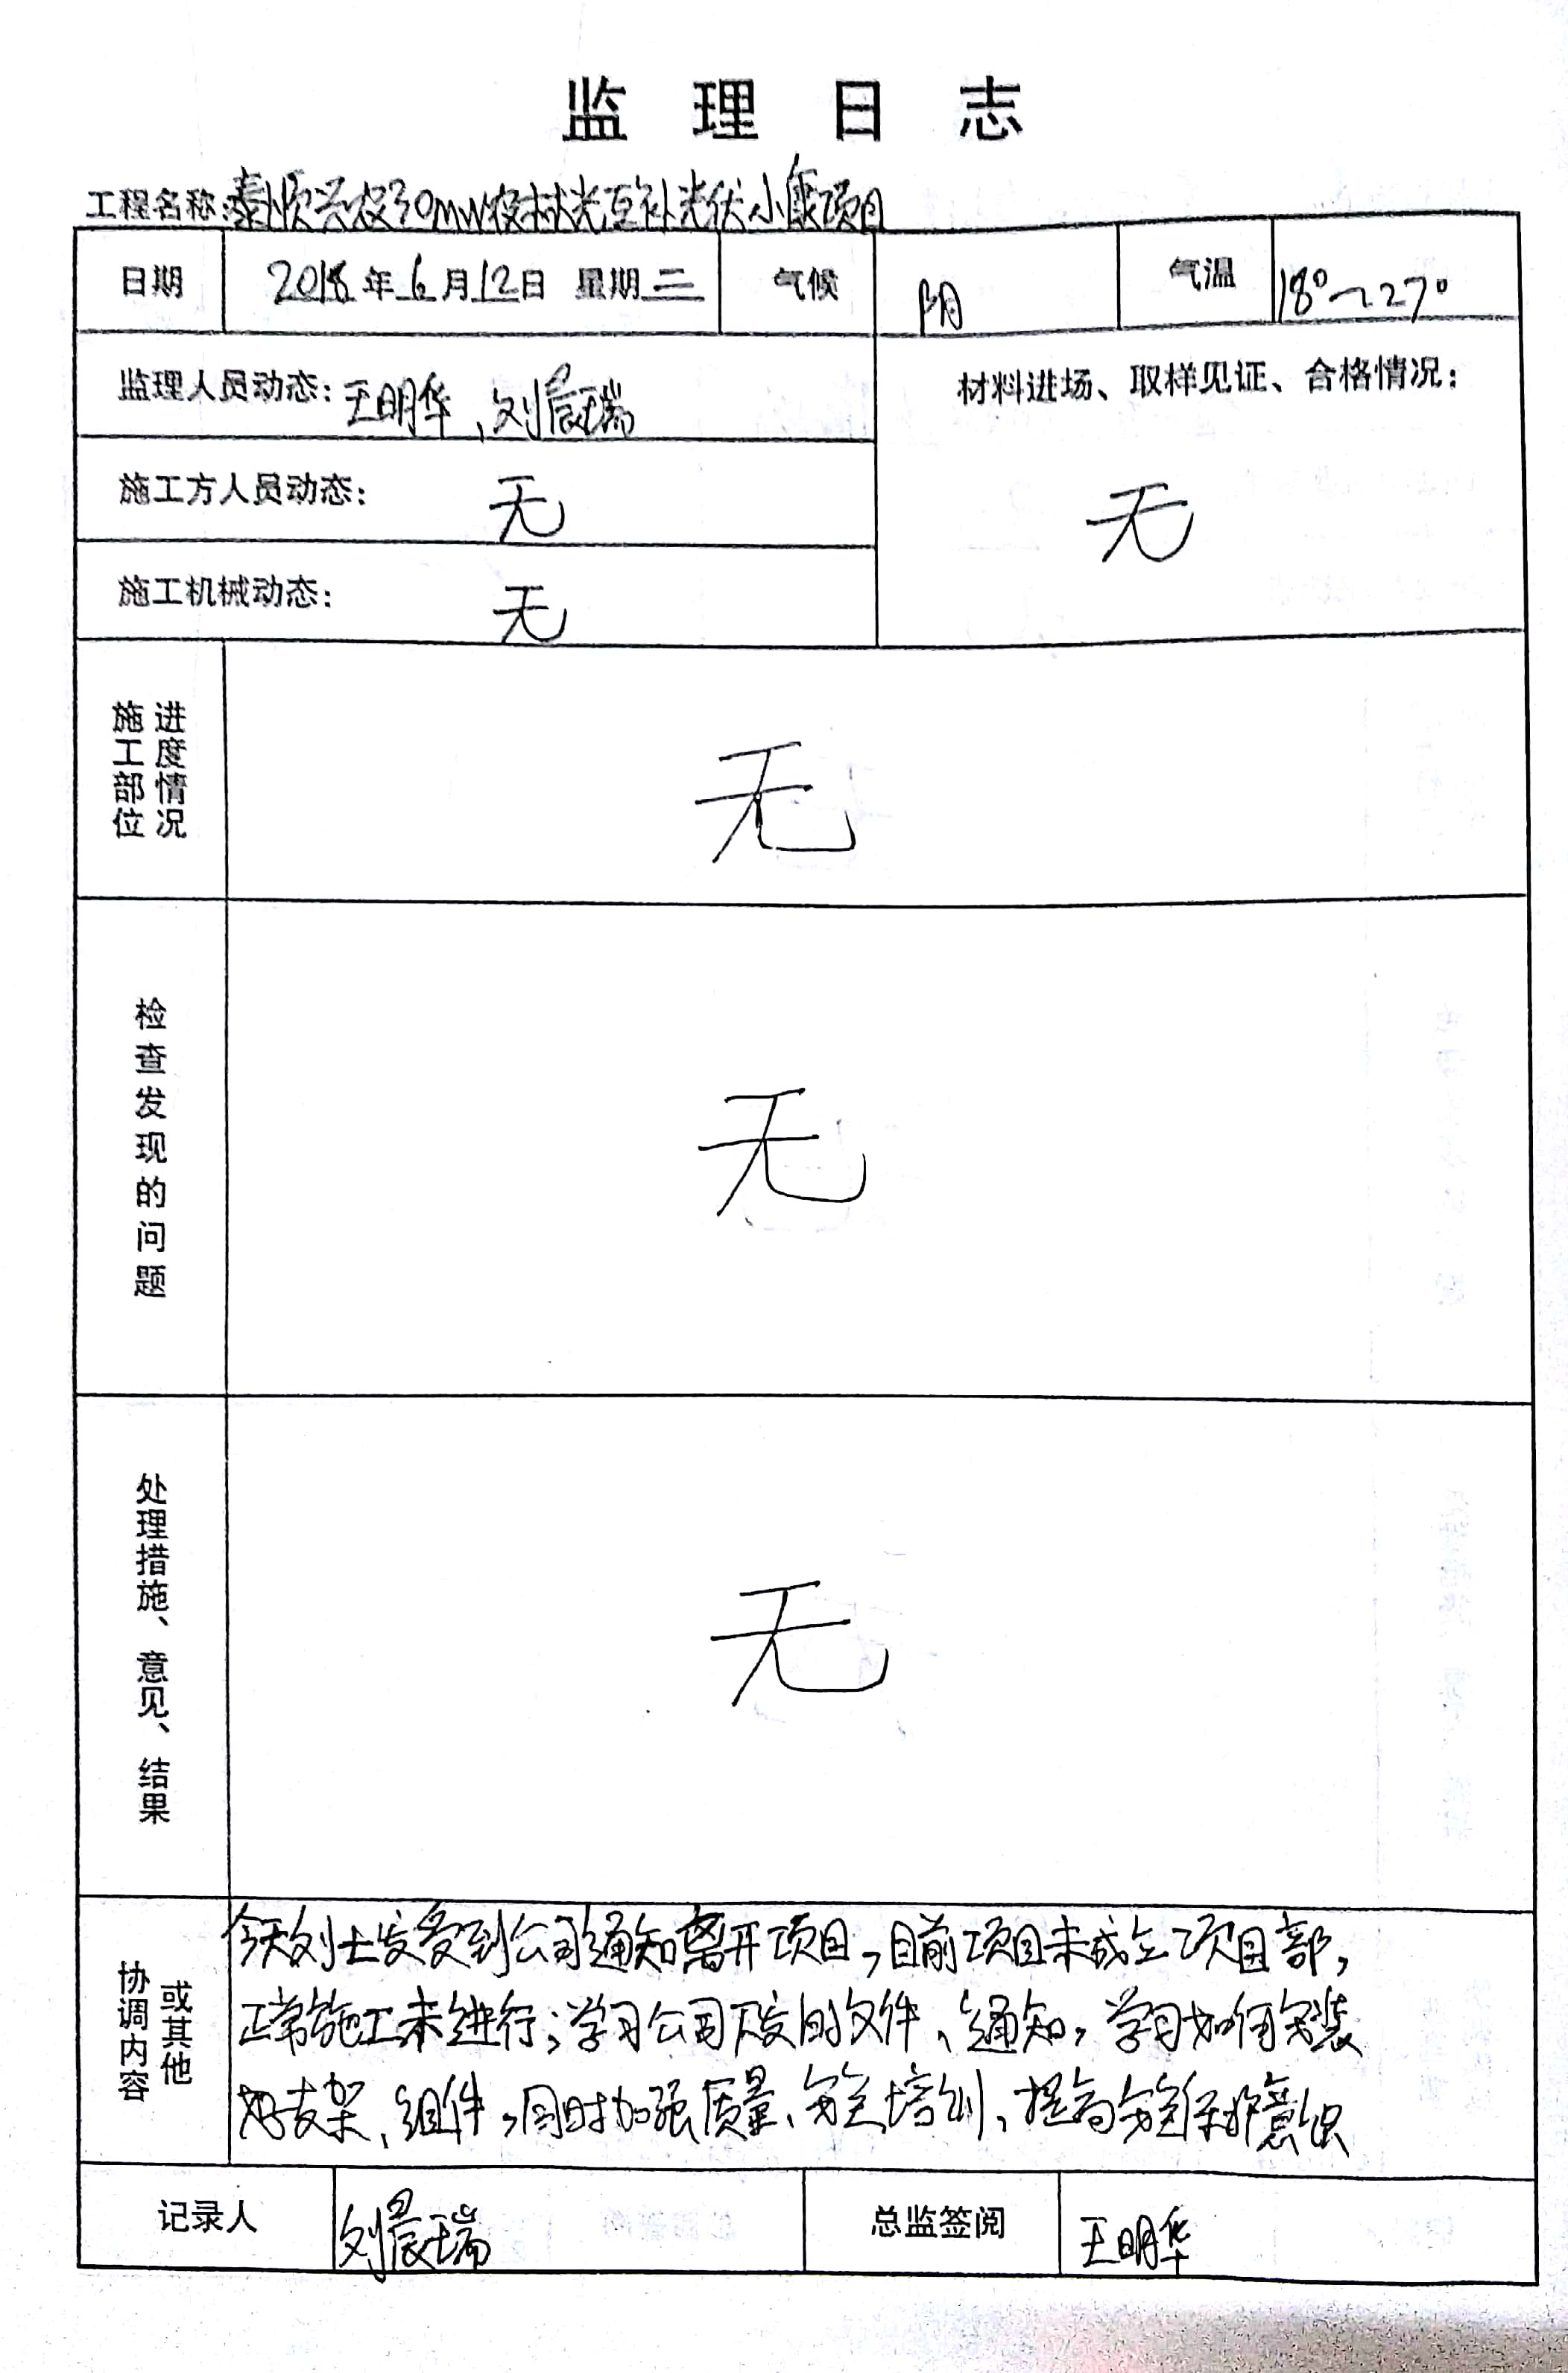 监理日志
工程名称:泰顺兴农30MW农林光互补光伏小康项目
日期 2018年6月12日 星期二 气候 阴 气温 18°~27°
监理人员动态: 王明华、刘晨瑞
材料进场、取样见证、合格情况:
施工方人员动态: 无
无
施工机械动态: 无
施工部位
进度情况
无
检查发现的问题
无
处理措施、意见、结果
无
协调内容
或其他
今天刘士发受到公司通知离开项目,目前项目未成立项目部,
正常施工未进行;学习公司下发的文件、通知,学习如何安装
好支架、组件,同时加强质量、安全培训、提高安全保护意识
记录人 刘晨瑞 总监签阅 王明华